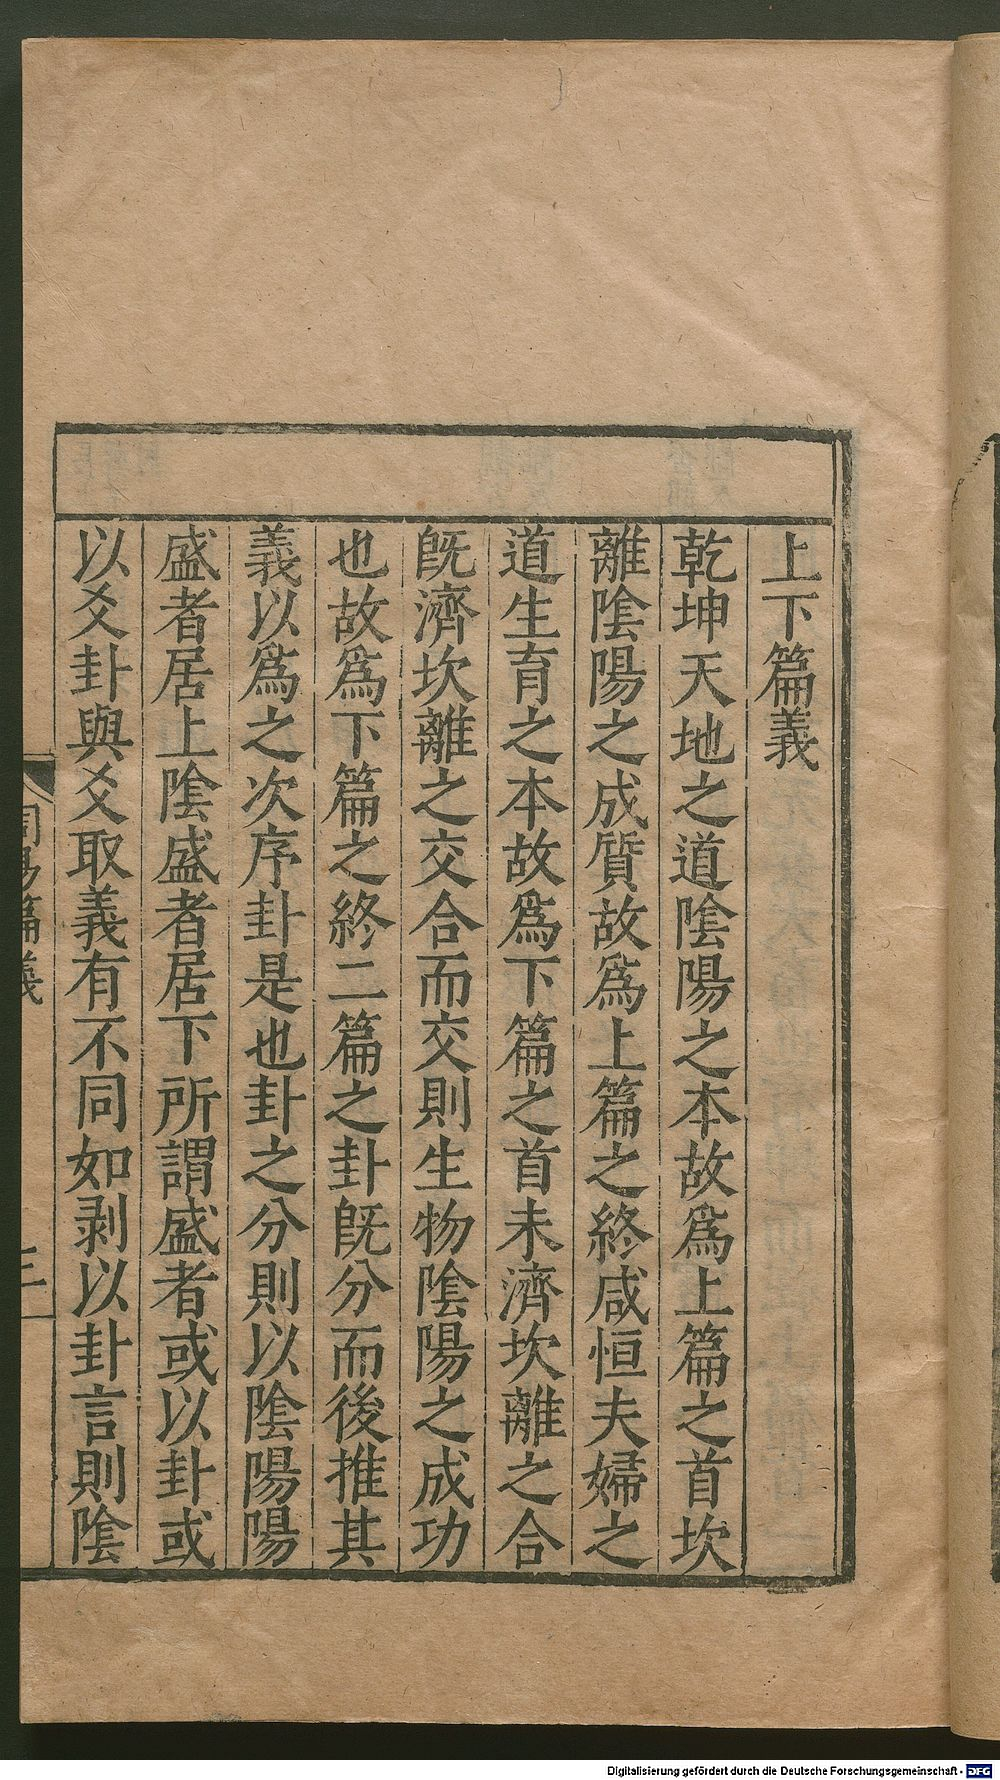 上下篇義
乾坤天地之道陰陽之本故爲上篇之首坎
離陰陽之成質故爲上篇之終咸恒夫婦之
道生育之本故爲下篇之首未濟坎離之合
旣濟坎離之交合而交則生物陰陽之成功
也故爲下篇之終二篇之卦旣分而後推其
義以爲之次序卦是也卦之分則以陰陽陽
盛者居上陰盛者居下所謂盛者或以卦或
以爻卦與爻取義有不同如剥以卦言則陰
周易篇義
三
Digitalisierung gefördert durch die Deutsche Forschungsgemeinschaft - DFG